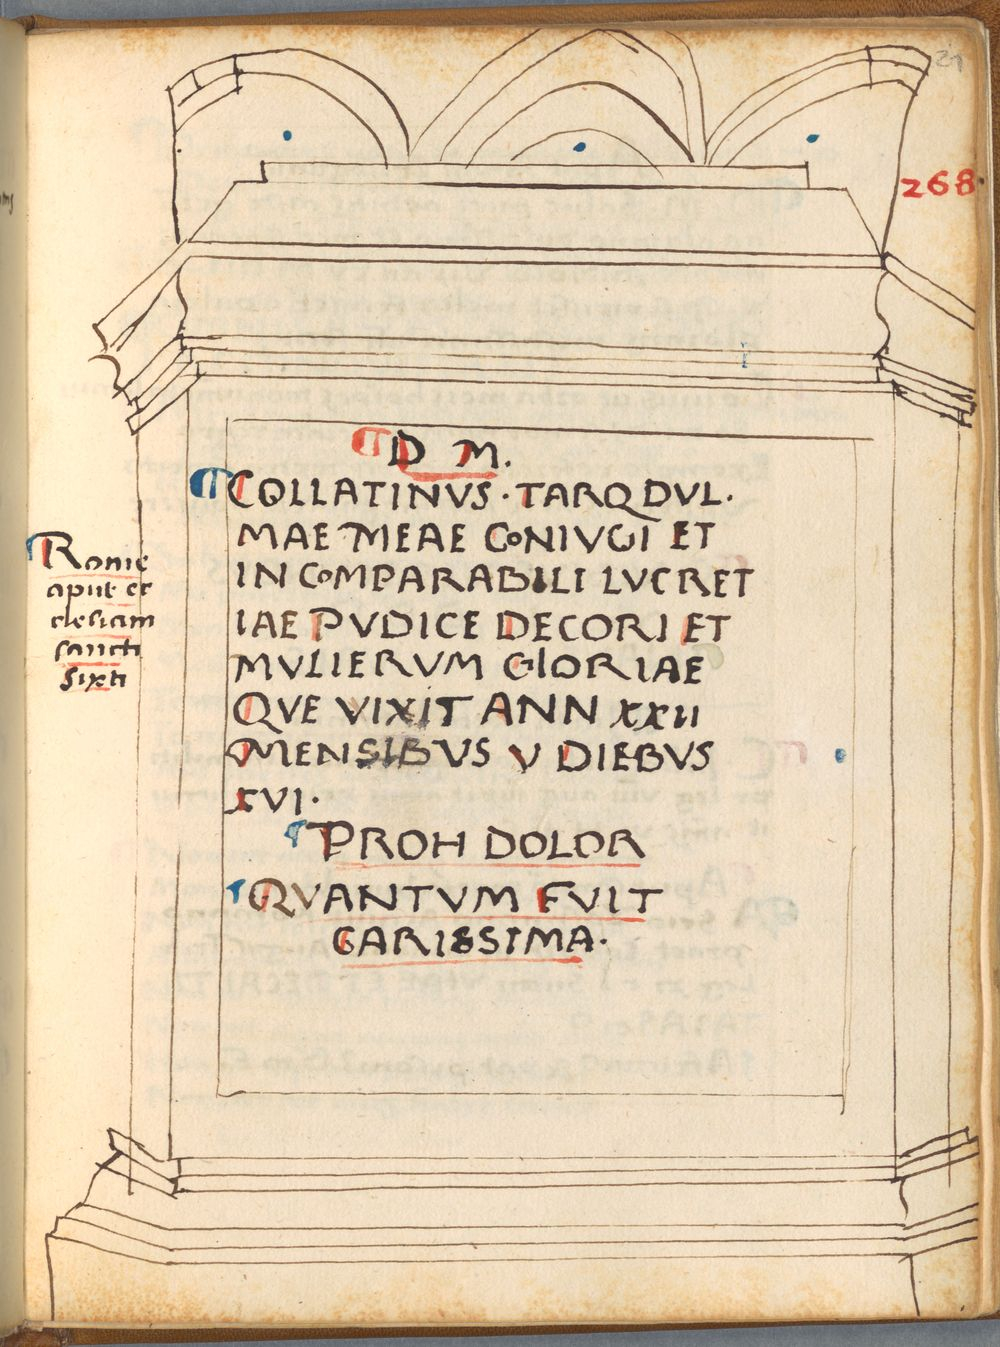 21
268.
D M.
COLLATINVS · TARQ DVL.
MAE MEAE CONIVGI ET
IN COMPARABILI LVCRET
IAE PVDICE DECORI ET
MVLIERVM GLORIAE
QVE VIXIT ANN XXII
MENSIBVS V DIEBVS
XVI.
PROH DOLOR
QVANTVM FVIT
CARISSIMA.
Rome
aput ec
clesiam
sancti
sixti